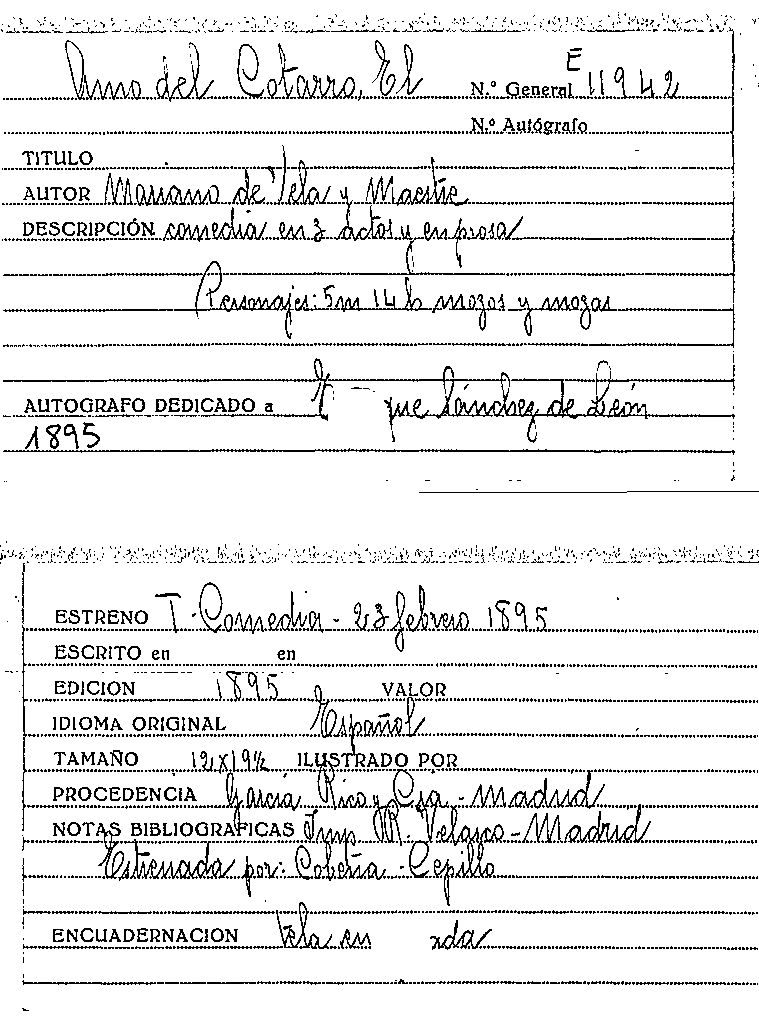 Amo del Cotarro, El N.º General E 11942
N.º Autógrafo
TITULO
AUTOR Mariano de Vela y Maestre
DESCRIPCIÓN comedia en 3 actos y en prosa
Personajes: 5m 14 h mozos y mozas
AUTOGRAFO DEDICADO a que Sánchez de León
1895
ESTRENO T. Comedia - 23 febrero 1895
ESCRITO en en
EDICION 1895 VALOR
IDIOMA ORIGINAL Español
TAMAÑO 12 x 19½ ILUSTRADO POR
PROCEDENCIA García Rico y Cía - Madrid
NOTAS BIBLIOGRAFICAS Imp. R. Velasco - Madrid
Estrenada por: Cobeña - Cepillo
ENCUADERNACION tela en